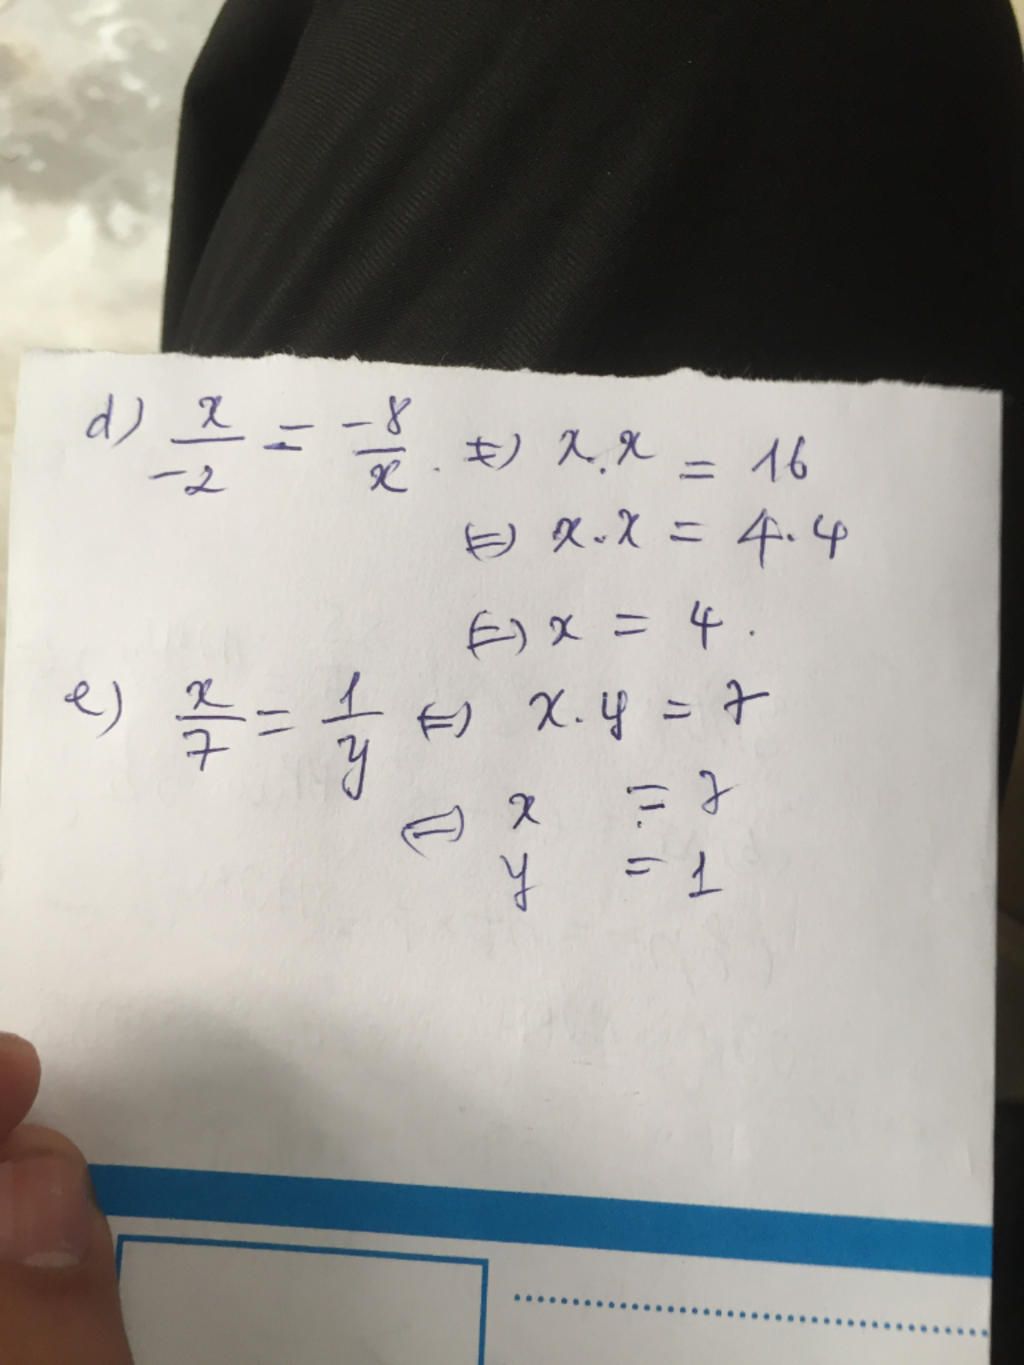 d) x/-2 = -8/x . ⇔ x.x = 16
⇔ x.x = 4.4
⇔ x = 4.
e) x/7 = 1/y ⇔ x.y = 7
⇔ x = 7
y = 1